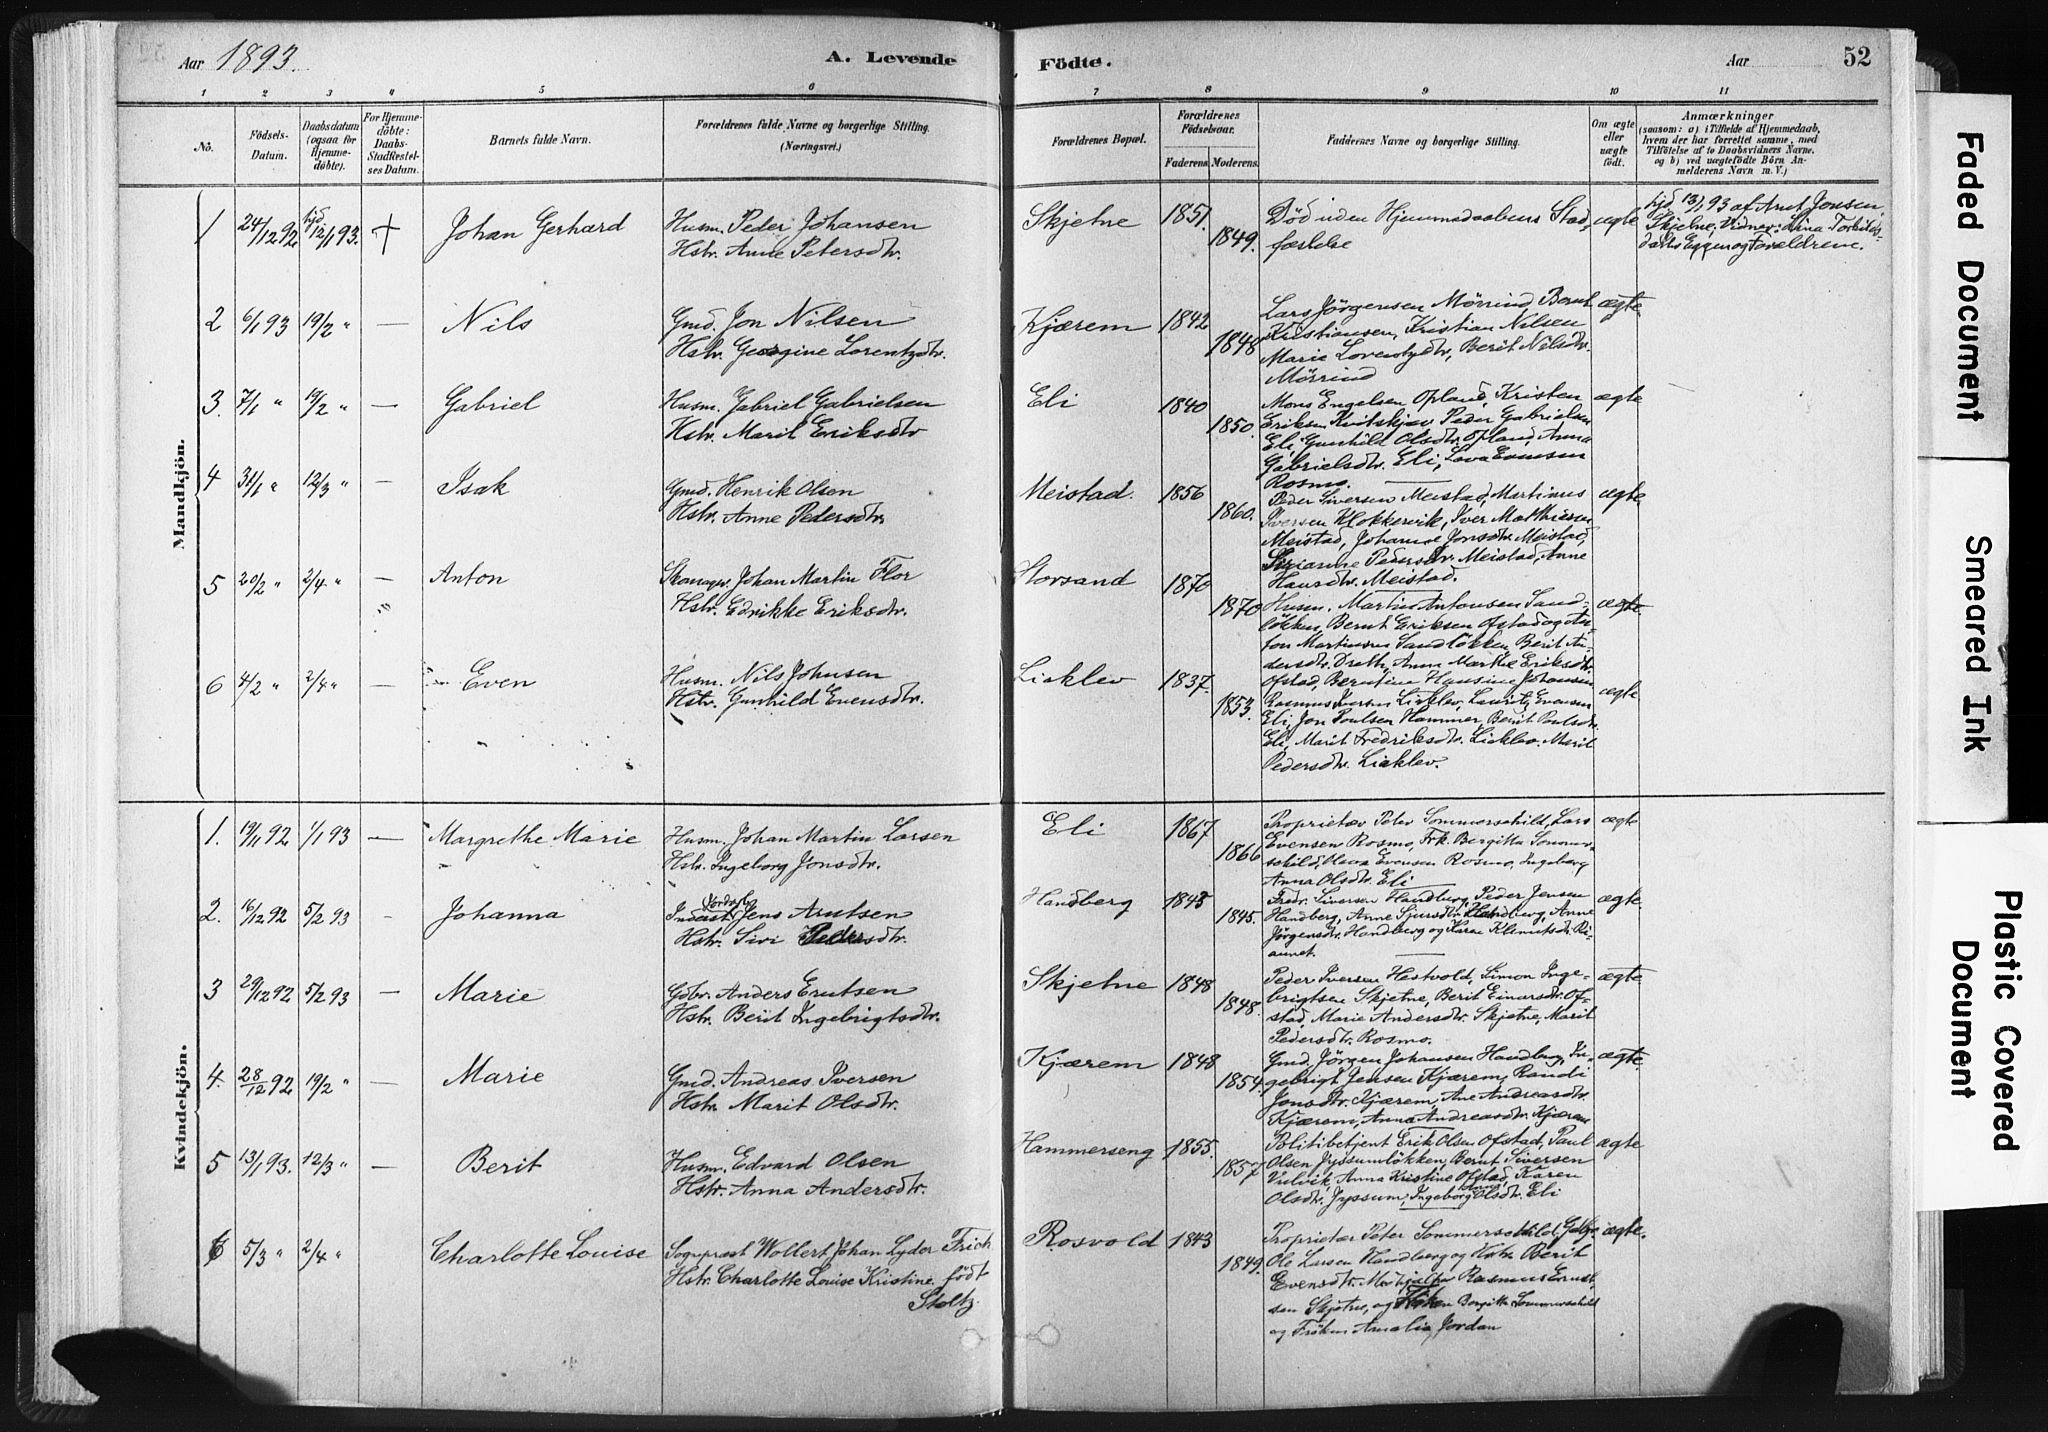 Aar 1893.
A. Levende
Födte.
Aar
52
1 2 3 4 5 6 7 8 9 10 11
No.
Födsels-
Datum.
Daabsdatum
(ogsaa for
Hjemme-
döbte).
For Hjemme-
döbte:
Daabs-
Stadfestel-
ses Datum.
Barnets fulde Navn.
Forældrenes fulde Navne og borgerlige Stilling.
(Næringsvei.)
Forældrenes Bopæl.
Forældrenes
Födselsaar.
Faderens. Moderens.
Faddernes Navne og borgerlige Stilling.
Om ægte
eller
uægte
födt.
Anmærkninger
(saasom: a) i Tilfælde af Hjemmedaab,
hvem der har forrettet samme, med
Tilföielse af to Daabsvidners Navne.
og b) ved uægtefödte Börn An-
melderens Navn m. V.)
Mandkjön.
1 24/12 92 hjd 12/1 93. + Johan Gerhard
Husm. Peder Johansen
Hstr. Anne Petersdtr.
Skjetne 1851 1849.
Död uden Hjemmedaabens Stad-
fæstelse
ægte
hjd 13/1 93 af Arnt Jonsen
Skjetne, Vidner: Lina Torkilds-
datter Eggen og Forældrene.
2 6/1 93 19/2 " — Nils
Gmd. Jon Nilsen
Hstr. Georgine Lorentzdtr.
Kjærem 1842 1848
Lars Jörgensen Mörrind Bernt
Kristiansen, Kristian Nilsen
Marie Lorentzdtr, Berit Nilsdtr.
Mörrind
ægte
3. 7/1 " 19/2 " — Gabriel
Husm. Gabriel Gabrielsen
Hstr. Marit Eriksdtr
Eli 1840 1850.
Mons Engelsen Opland, Kristen
Eriksen Kvitskjær Peder Gabrielsen
Eli, Gunhild Olsdtr. Opland, Anna
Gabrielsdtr. Eli, Lava Evensen
Rosmo.
ægte
4 31/1 " 12/3 " — Isak
Gmd. Henrik Olsen
Hstr. Anne Pedersdtr.
Meistad. 1856 1860.
Peder Siversen Meistad, Martinus
Iversen Klokkervik, Iver Matthiesen
Meistad, Johanne Jonsdtr. Meistad,
Pedersdtr. Meistad, Anne
Hansdtr. Meistad.
ægte
5 20/2 " 2/4 " — Anton
Skomager. Johan Martin Flor
Hstr. Edrikke Eriksdtr.
Storsand 1870 1870
Husm. Martin Antonsen Sand-
løkken, Bernt Eriksen Ofstad og An-
ton Martinsen Sandløkken, Berit An-
dersdtr. Drath, Anne Marthe Eriksdtr.
Ofstad, Berntine Hansine Johansen
ægte
6 4/2 " 2/4 " — Even
Husm. Nils Johnsen
Hstr. Gunhild Evensdtr.
Lieklev 1837. 1853.
Rasmus Iversen Lieklev, Lauritz Evensen
Eli, Jon Poulsen Hammer, Berit Poulsdtr.
Eli, Marit Fredriksdtr. Lieklev. Marit
Pedersdtr. Lieklev.
ægte
Kvindekjön.
1. 19/1 92 1/1 93 — Margrethe Marie
Husm. Johan Martin Larsen
Hstr. Ingeborg Jonsdtr.
Eli 1867 1866
Proprietær Peter Sommerschild, Lars
Evensen Rosmo, Frk. Bergitta Sommer-
schild, Mava Evensen Rosmo, Ingeborg
Anna Olsdtr. Eli
ægte
2. 16/12 92 5/2 93 Johanna
Inderst Jens Arntsen
Hstr. Siri Pedersdtr.
Handberg 1848 1845.
Fredr. Siversen Handberg, Peder Jensen
Handberg, Anne Sjursdtr. Handberg, Anne
Jörgensdtr. Handberg og Karen Klemetsdtr. Ri-
aunet.
ægte.
3 29/12 92 5/2 93 — Marie
Gdbr. Anders Erntsen
Hstr. Berit Ingebrigtsdtr.
Skjetne 1848 1848.
Peder Iversen Hestvold, Simon Inge-
brigtsen Skjetne, Berit Einarsdtr. Of-
stad, Marie Andersdtr. Skjetne, Marit
Pedersdtr. Rosmo.
ægte
4. 28/12 92 19/2 " — Marie
Gmd. Andreas Iversen
Hstr. Marit Olsdtr.
Kjærem 1848 1854.
Gmd. Jörgen Johansen Handberg, In-
gebrigt Jensen Kjærem, Randi
Jonsdtr. Kjærem, Ane Andreasdtr.
Kjærem, Anna Andreasdtr. Kjærem
ægte
5 13/1 93. 12/3 " — Berit
Husm. Edvard Olsen
Hstr. Anna Andersdtr.
Hammerseng 1855. 1857
Politibetjent Erik Olsen Ofstad, Paul
Olsen Jyssumløkken, Bernt Siversen
Vulvik, Anna Kristine Ofstad, Karen
Olsdtr. Jyssum, Ingeborg Anna Olsdtr. Eli
ægte
6 5/3 " 2/4 " Charlotte Louise
Sogneprest Wollert Johan Lyder Frich
Hstr. Charlotte Louise Kristine födt
Stoltz.
Rosvold 1843 1849.
Proprietær Peter Sommerschild, Gdbr.
Ole Larsen Handberg og Hstr. Berit
Evensdtr. Rasmus Ernt-
sen Skjetne, og Bergitta Sommerschild
og Fröken Amalia Jordan
ægte.
Faded Document
Smeared Ink
Plastic Covered
Document